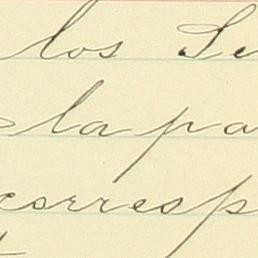 los Se
la pa
corresp